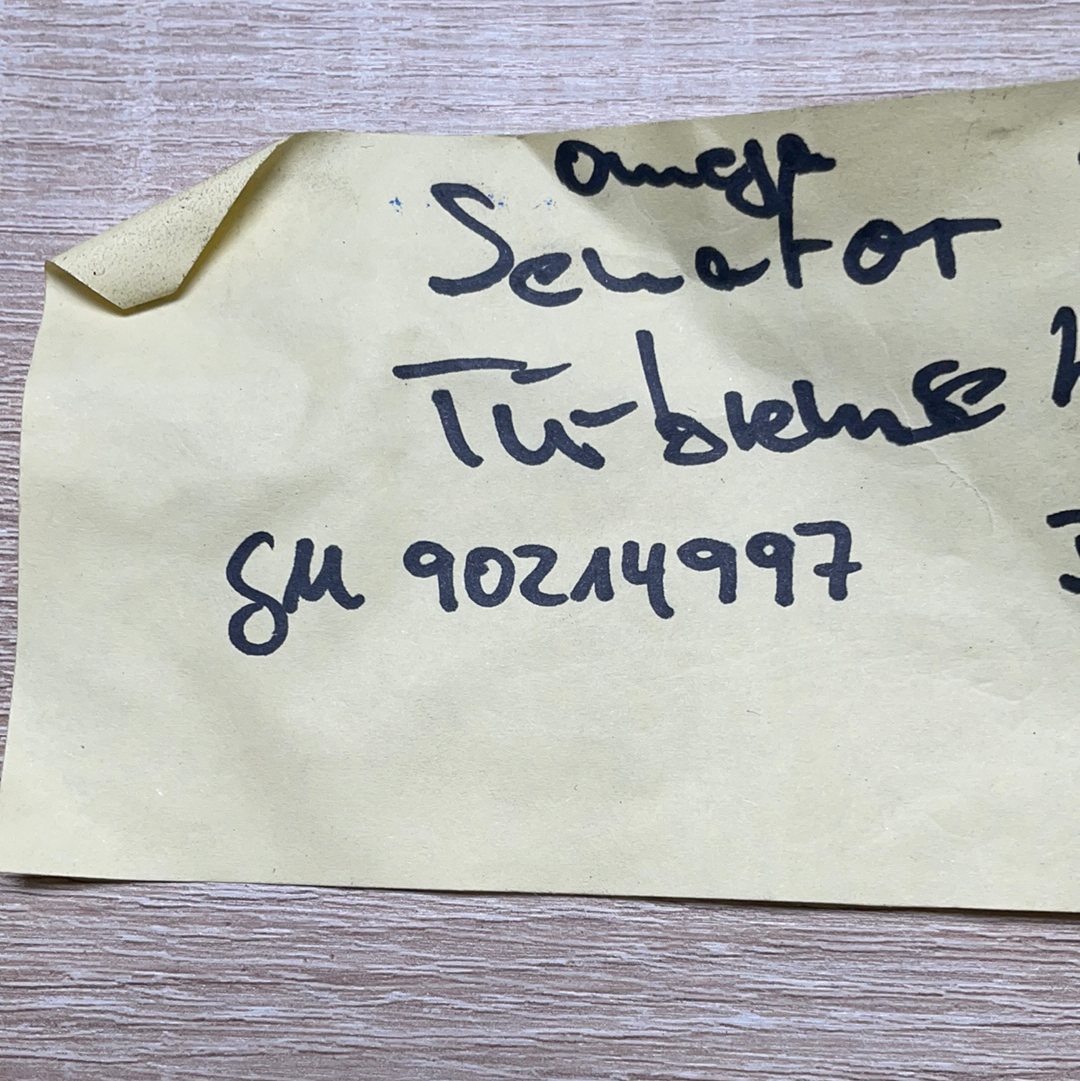 Omega
Senator
Türbremse
GM 90214997